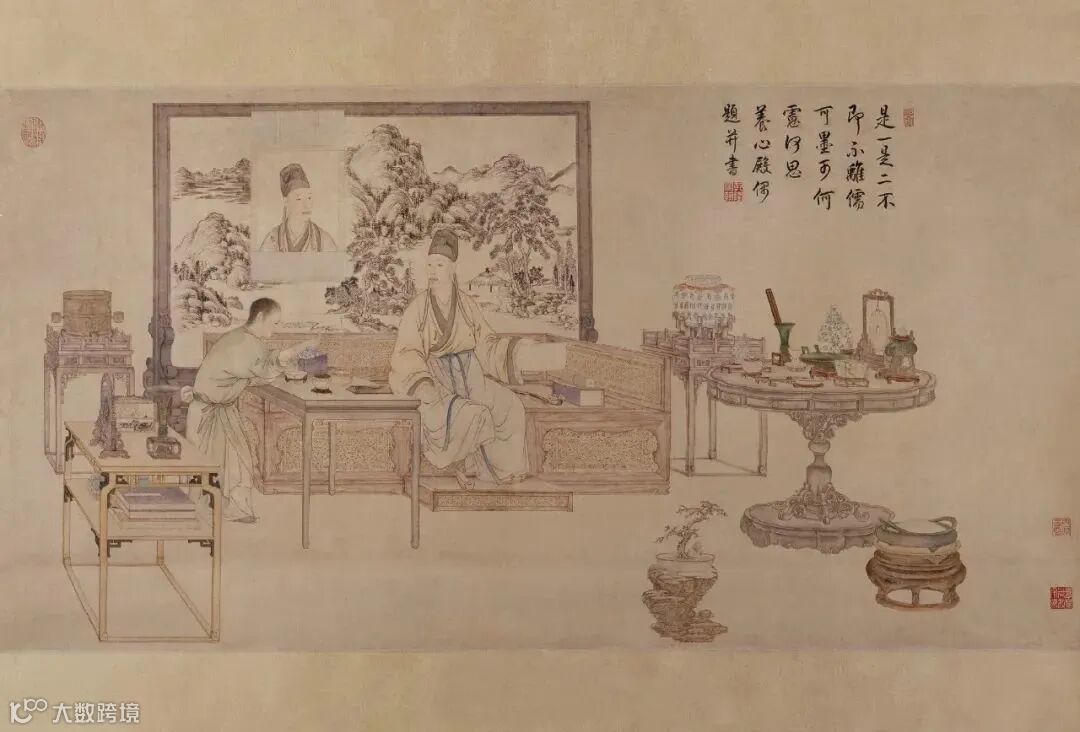 是一是二不
即不離儒
可墨可何
慮何思
養心殿偶
題并書
大数跨境